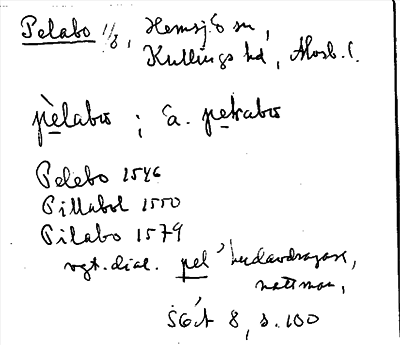 Pelabo 1/8, Hemsjö sn,
Kullings hd, Älvsb. l.
pèlabo ; ä. petrabo
Pelebo 1546
Pillabol 1550
Pilabo 1579
vgt. dial. pel 'hudavdragare,
nattman,
SGÅ 8, s. 100